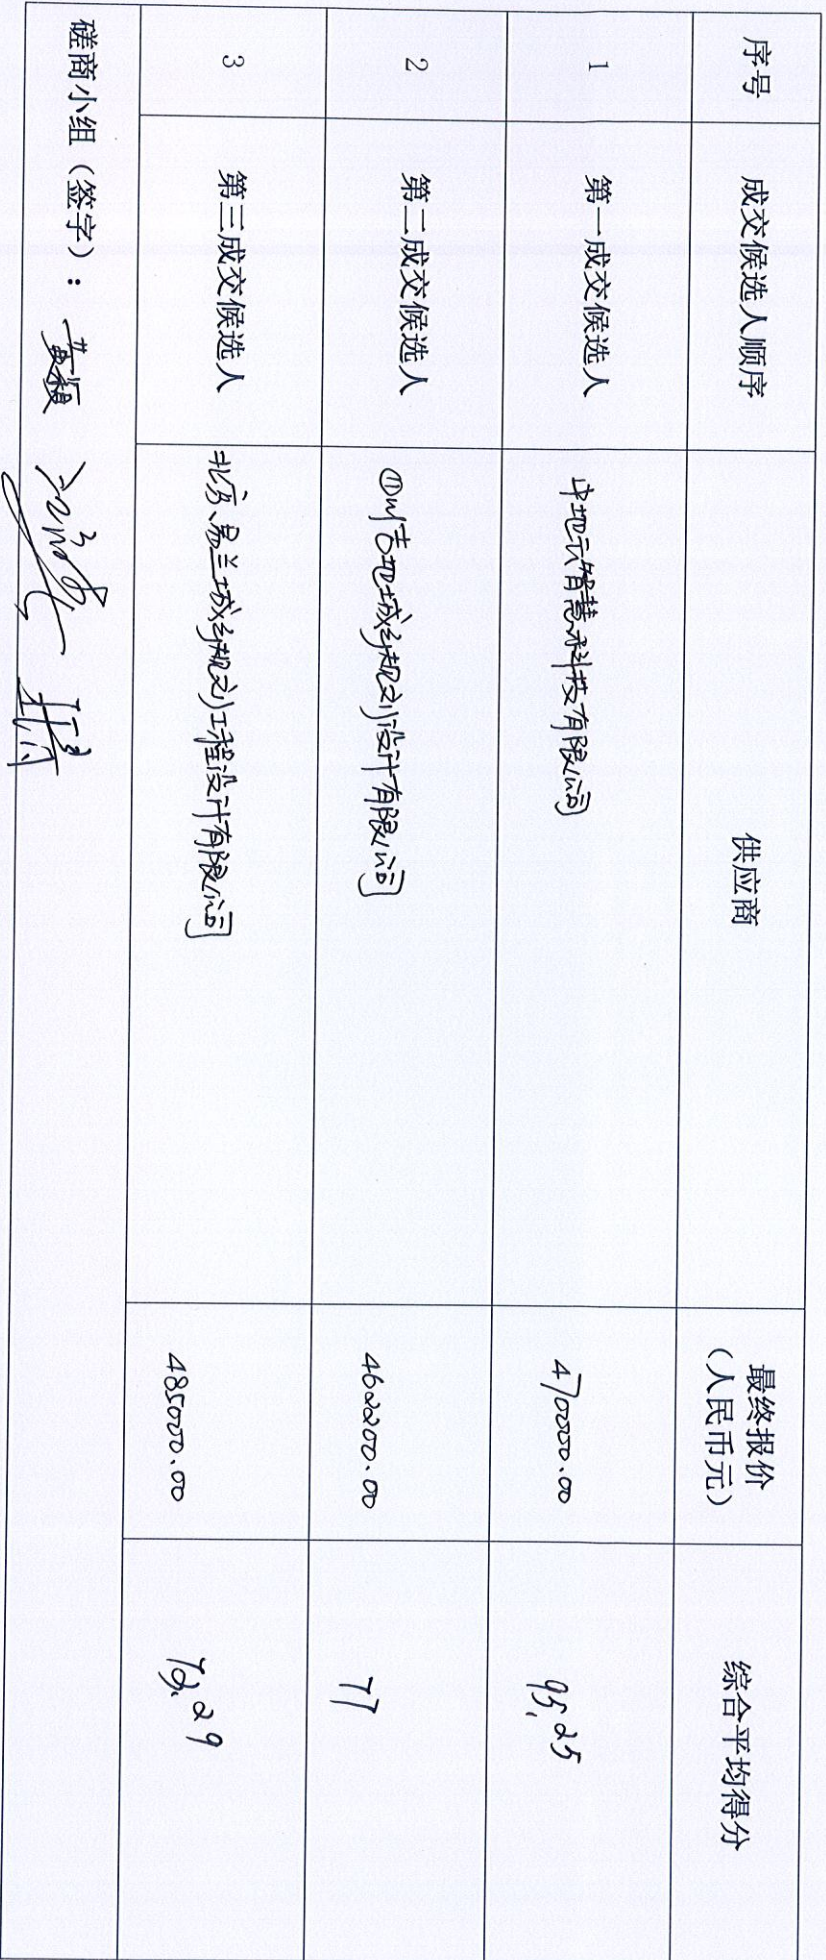 序号 成交候选人顺序 供应商 最终报价（人民币元） 综合平均得分
1 第一成交候选人 中地云智慧科技有限公司 470000.00 95.25
2 第二成交候选人 城乡规划设计有限公司 462200.00 77
3 第三成交候选人 北京易兰城乡规划工程设计有限公司 485000.00 29
磋商小组（签字）： 黄颖